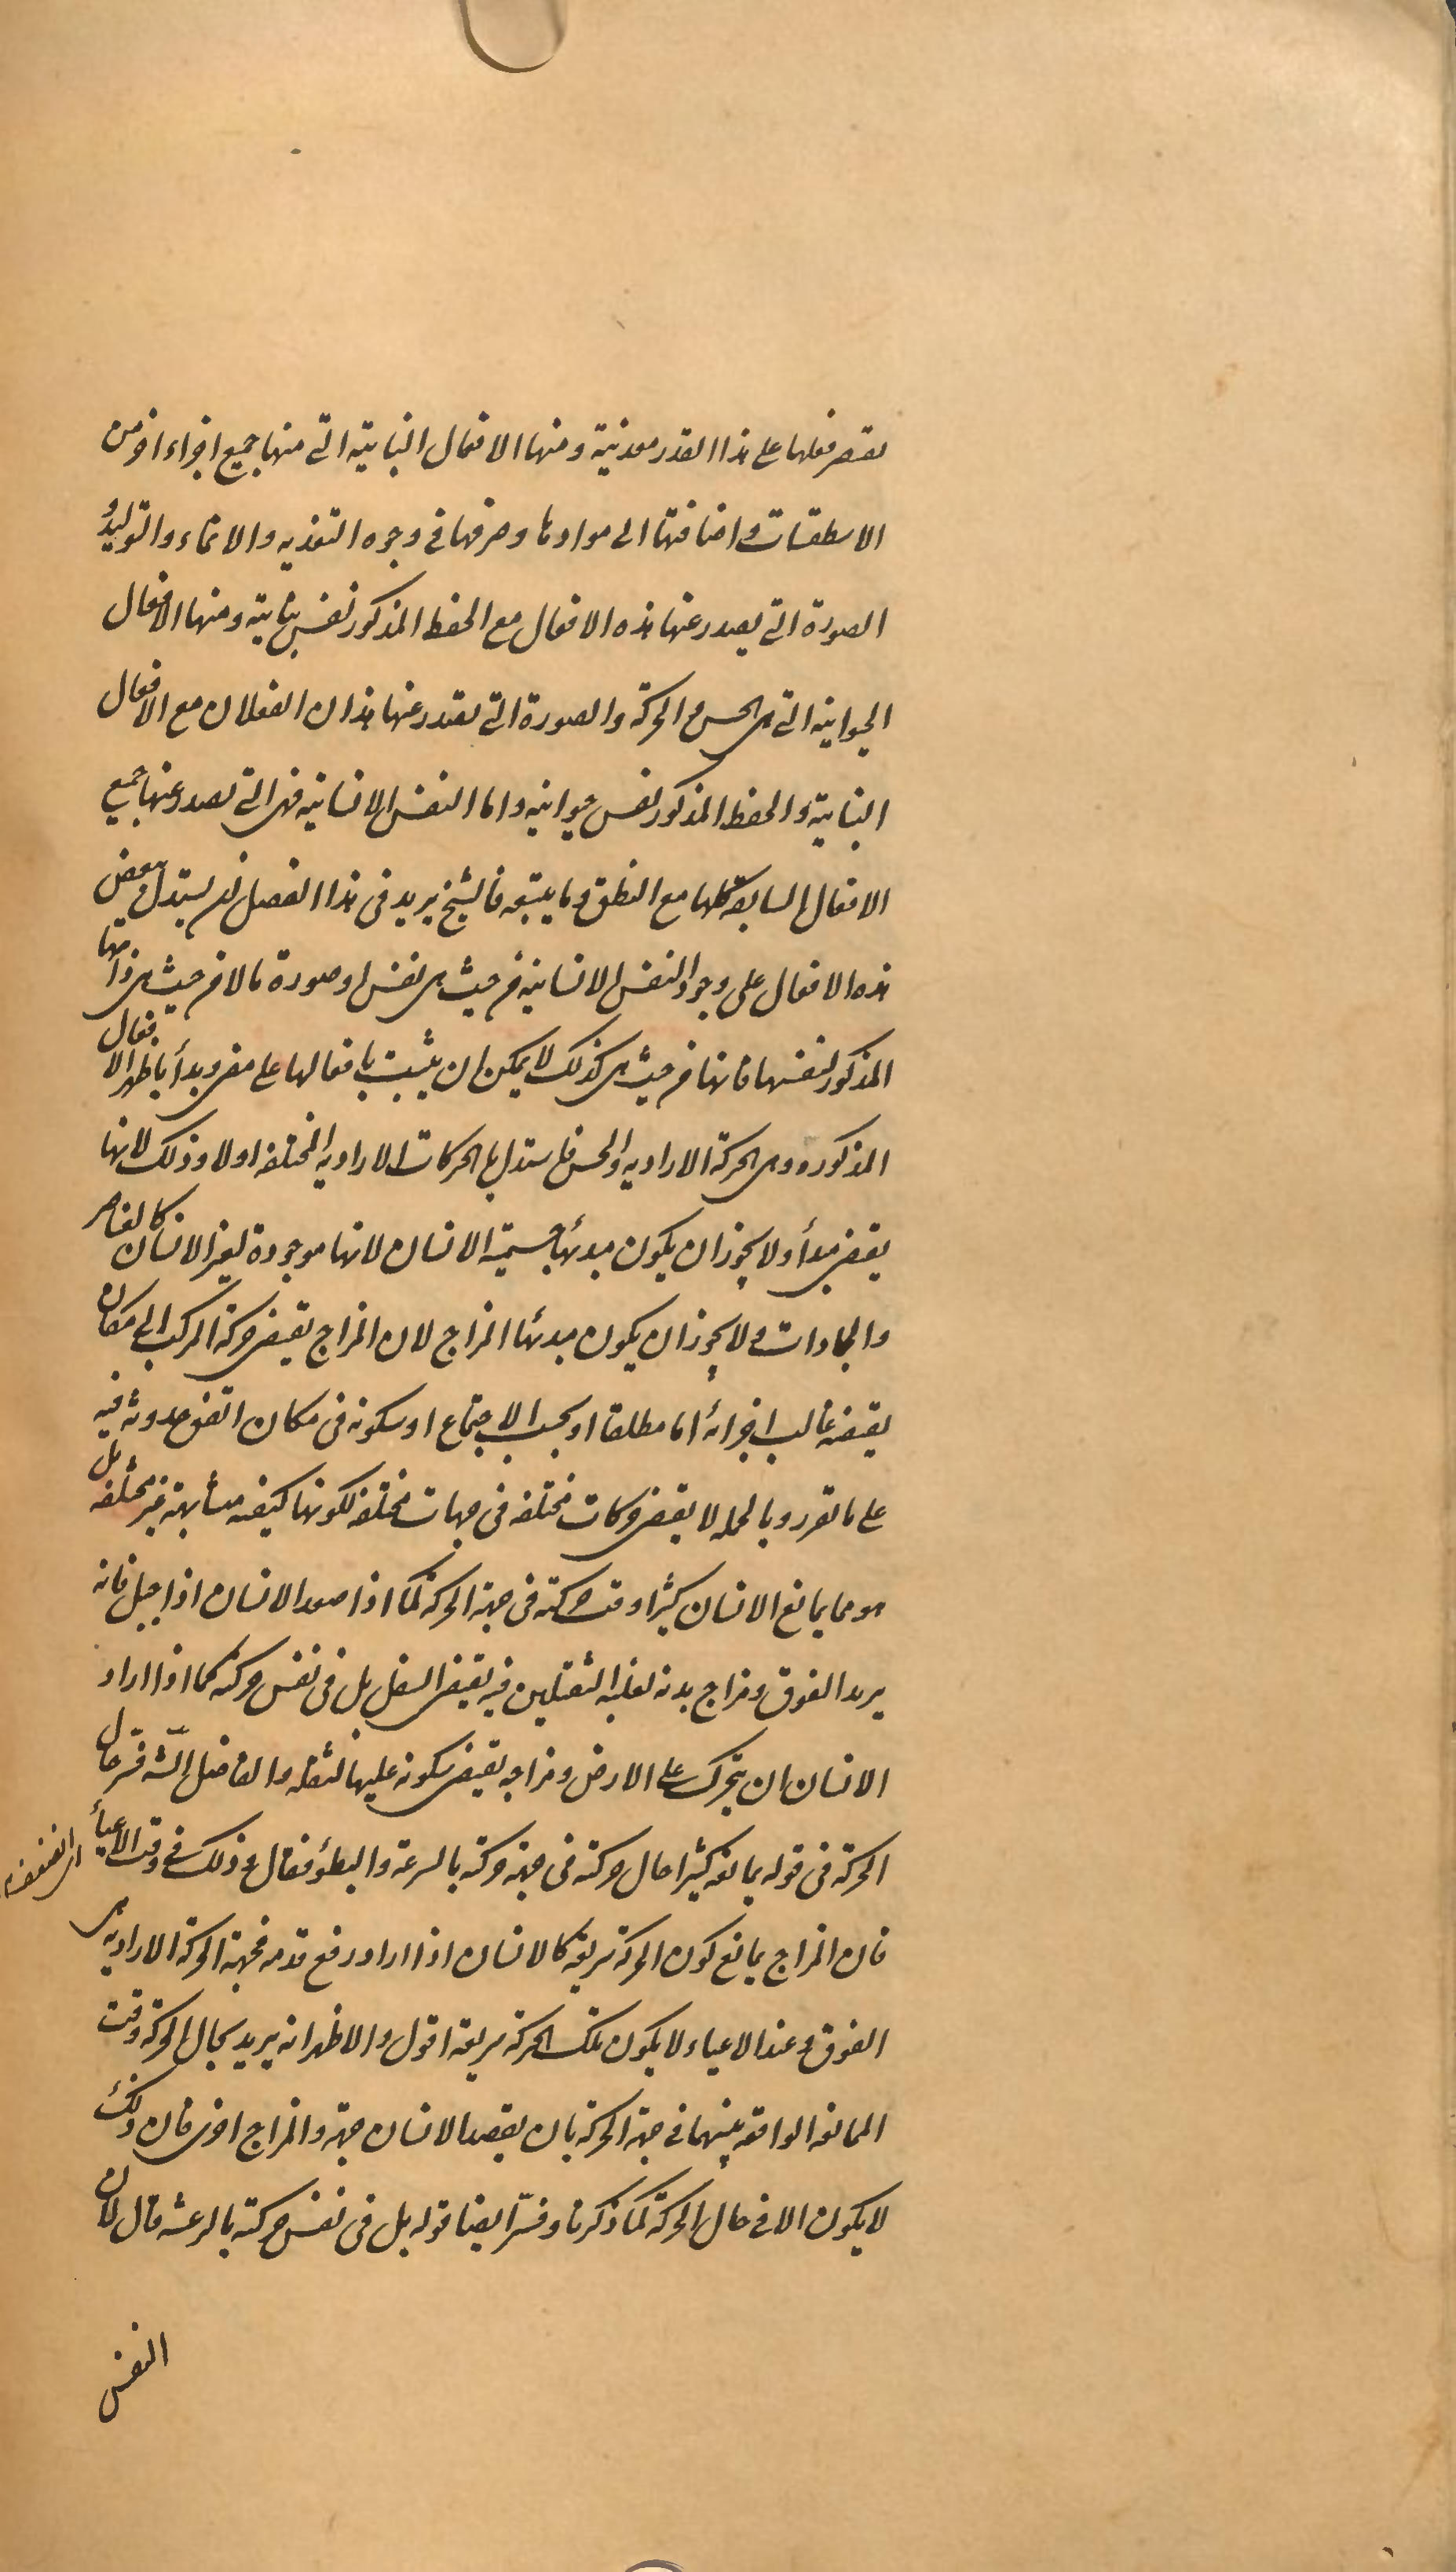 يقتصر فعلها على هذا القدر معدنية ومنها الافعال النباتية التي منها جميع اجزاء اخر من
الاسطقسات واضافتها الى موادها وصرفها في وجوه التغذيه والانماء والتوليد و
الصورة التي يصدر عنها هذه الافعال مع الحفظ المذكور نفس نباتية ومنها الافعال
الحيوانيه التي هى الحس والحركة والصورة التي تصدر عنها هذان الفعلان مع الافعال
النباتية والحفظ المذكور نفس حيوانيه واما النفس الانسانيه فهى التي تصدر عنها جميع
الافعال السابقة كلها مع النطق وما يتبعه فالشيخ يريد فى هذا الفصل ان يستدل ببعض
هذه الافعال على وجود النفس الانسانيه من حيث هى نفس او صورة ما لا من حيث هى ذاتها
المذكور لنفسها فانها من حيث هى كذلك لا يمكن ان يثبت بافعالها على مضى وبدأ باظهر الافعال
المذكوره وهى الحركة الاراديه والحس فاستدل بالحركات الاراديه المختلفه اولا وذلك لانها
يقتضى مبدأ ولا يجوز ان يكون مبدئها جسمية الانسان لانها موجودة لغير الانسان كالعناصر
والجمادات ولا يجوز ان يكون مبدئها المزاج لان المزاج يقتضى حركة المركب الى مكان
يقتضيه غالب اجزائه اما مطلقا او بحسب الاجتماع او سكونه فى مكان اتفق حدوثه فيه
على ما تقرر وبالجمله لا يقتضى حركات مختلفه فى جهات مختلفه لكونها كيفيه متشابهة غير مختلفه بل
هو مما يمانع الانسان كثيرا وقت حركته فى جهة الحركة كما اذا صعد الانسان اذا جبل فانه
يريد الفوق ومزاج بدنه لغلبة الثقيلين فيه يقتضى السفل بل فى نفس حركته كما اذا اراد
الانسان ان يتحرك على الارض ومزاجه يقتضى سكونه عليها لثقله والفاضل الشه فسر حال
الحركة فى قوله يمانعه كثيرا حال حركته فى جهة حركته بالسرعة والبطؤ فقال وذلك في وقت الاعياء
فان المزاج يمانع كون الحركة سريعة كالانسان اذا اراد رفع قدمه فجهة الحركة الاراديه هى
الفوق وعند الاعياء لا يكون تلك الحركة سريعة اقول والاظهر انه يريد بحال الحركة وقت
الممانعه الواقعه بينهما في جهة الحركة بان يقصد الانسان جهة والمزاج اخرى فان ذلك
لا يكون الا في حال الحركة كما ذكرنا وفسر ايضا قوله بل فى نفس حركته بالرعشه قال لان
النفس